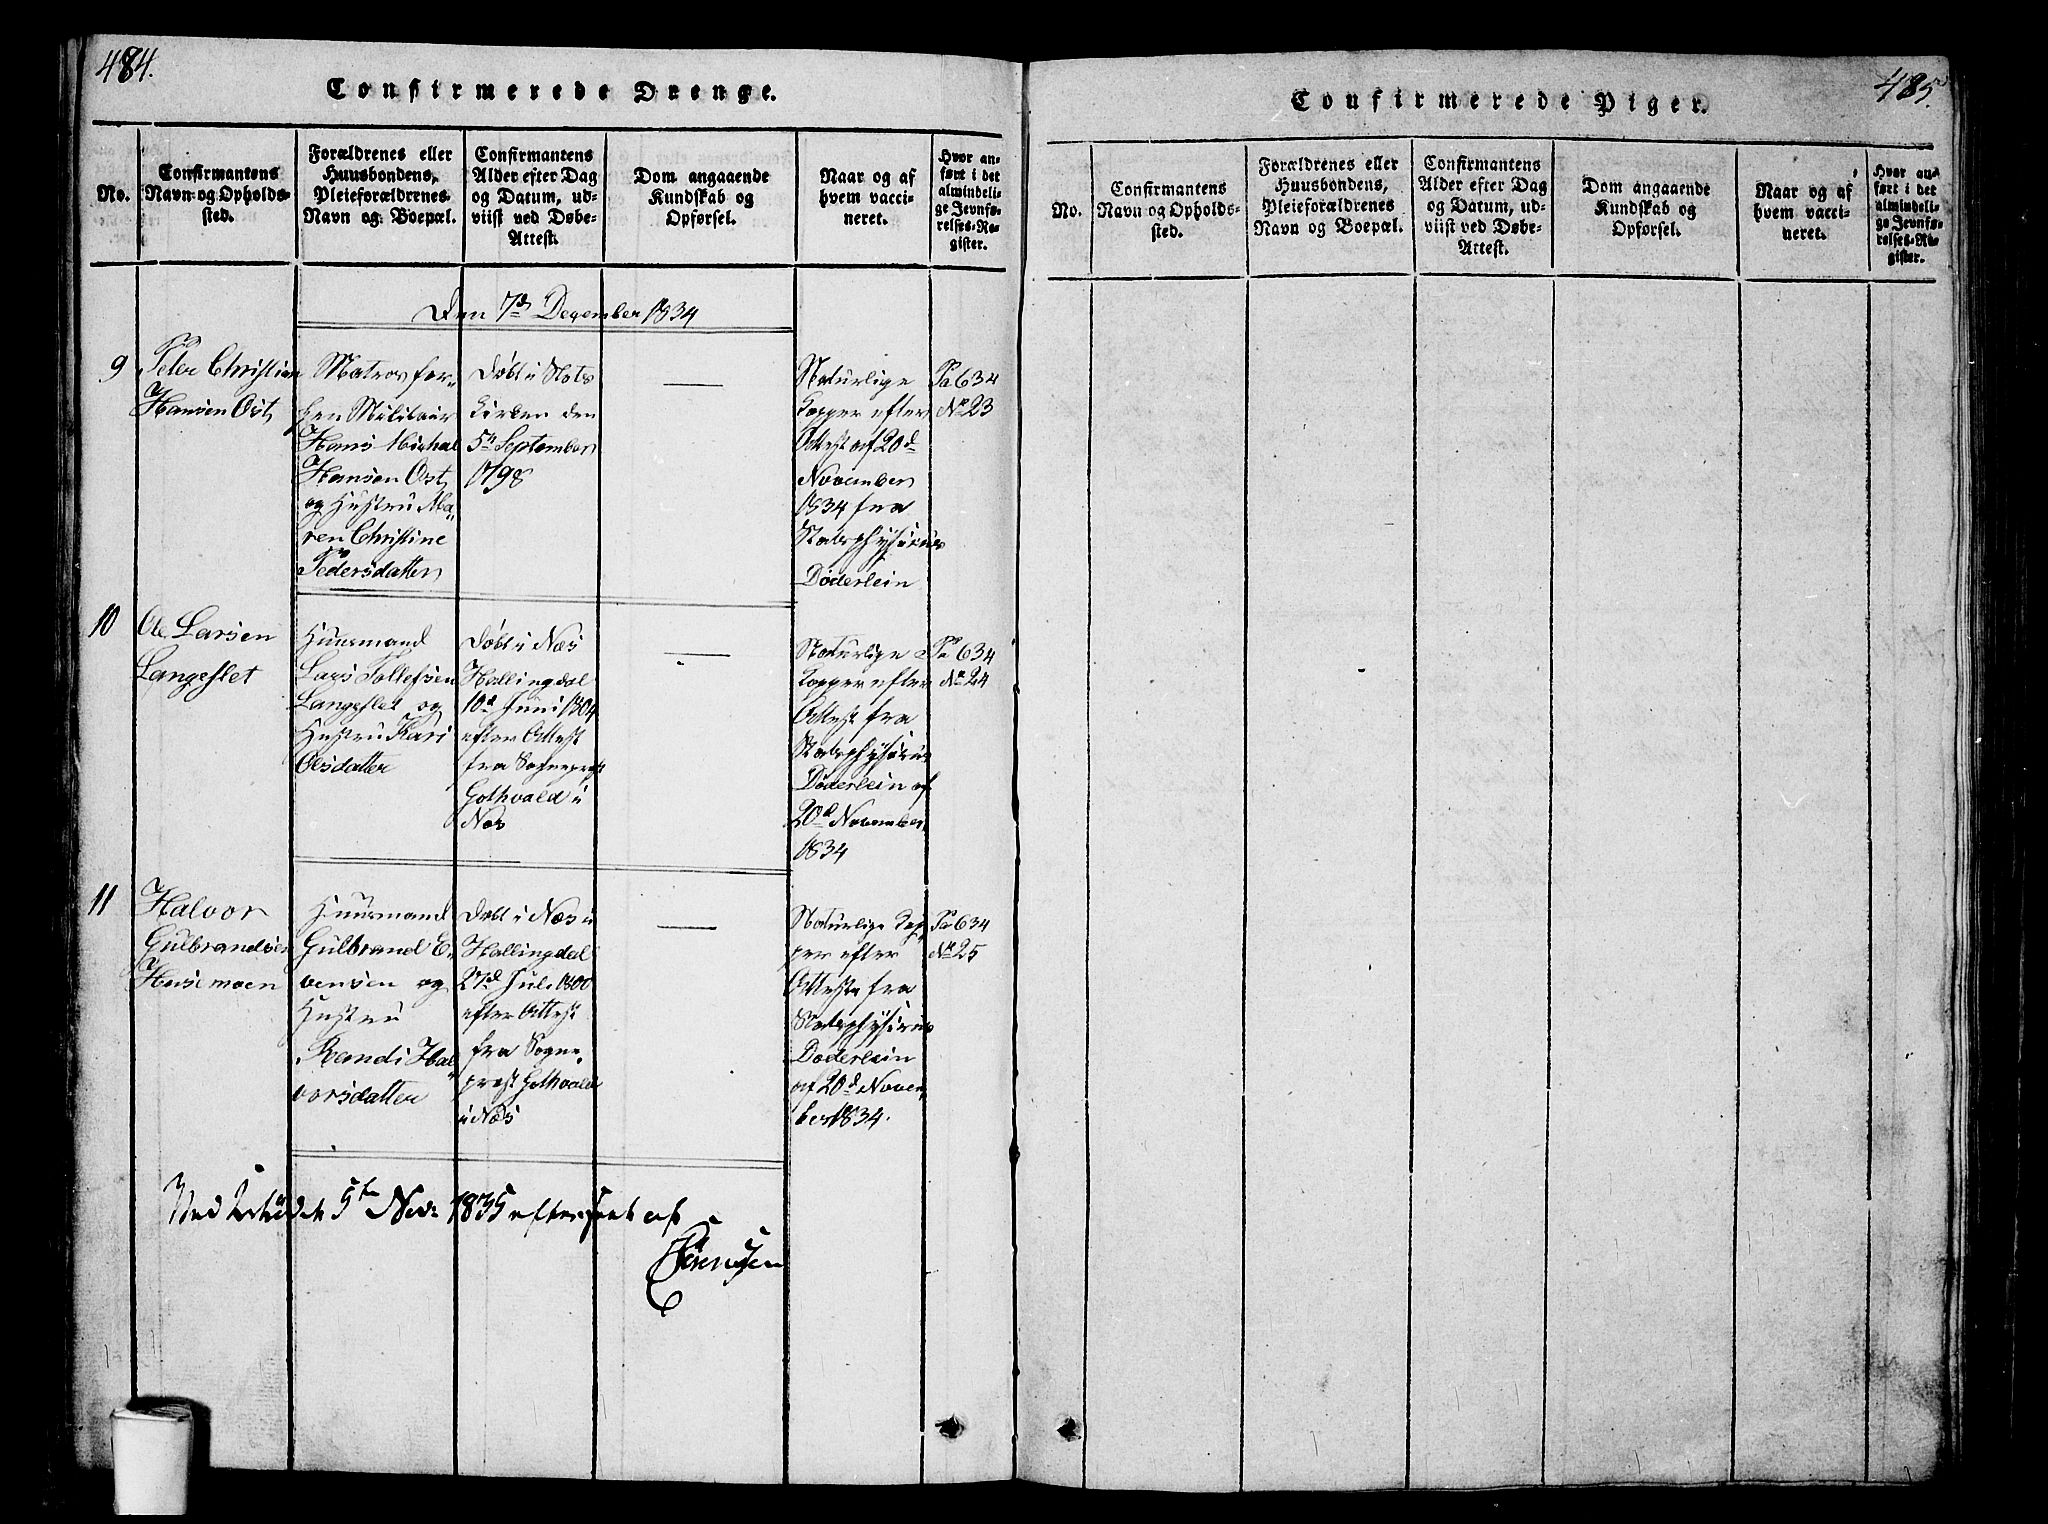 484.
Confirmerede Drenge.
No.
Confirmantens
Navn og Opholds-
sted.
Forældrenes eller
Huusbondens,
Pleieforældrenes
Navn og Boepæl.
Confirmantens
Alder efter Dag
og Datum, ud-
viist ved Døbe-
Attest.
Dom angaaende
Kundskab og
Opførsel.
Naar og af
hvem vacci-
neret.
Hvor an-
ført i det
almindeli-
ge Jevnfø-
relses-Re-
gister.
Den 7d December 1834
9
Peter Christian
Hansen Ost
Matros for-
hen Militair
Hans Michal
Hansen Ost
og Hustru Ma-
ren Christine
Pedersdatter
Døbt i Slots
Kirken den
5te September
1798
Naturlige
Kopper efter
Attest af 20d
November
1834 fra
Stadsphysicus
Døderlein
Pa 634
No 23
10
Ole Larsen
Langeslet
Huusmand
Lars Tollefsen
Langeslet og
Hustru Kari
Olsdatter
Døbt i Næs
Hallingdal
10d Juni 1804
efter Attest
fra Sognepræst
Gothvald i
Næs
Naturlige
Kopper efter
Attest fra
Stadsphysicus
Døderlein af
20d November
1834
Pa 634
No 24
11
Halvor
Gulbrandsen
Huusmand
Gulbrand E-
vensen og
Hustru
Randi Hal-
vorsdatter
Døbt i Næs i
Hallingdal
27d Juli 1800
efter Attest
fra Sogne-
præst Gothvald
i Næs
Naturlige Kop-
per efter
Attest fra
Stadsphysicus
Døderlein
af 20d Novem-
ber 1834.
Pa 634
No 25
5te Nov. 1835 efterseet af
Sørenssen
485.
Confirmerede Piger.
No.
Confirmantens
Navn og Opholds-
sted.
Forældrenes eller
Huusbondens,
Pleieforældrenes
Navn og Boepæl.
Confirmantens
Alder efter Dag
og Datum, ud-
viist ved Døbe-
Attest.
Dom angaaende
Kundskab og
Opførsel.
Naar og af
hvem vacci-
neret.
Hvor an-
ført i det
almindeli-
ge Jevnfø-
relses-Re-
gister.